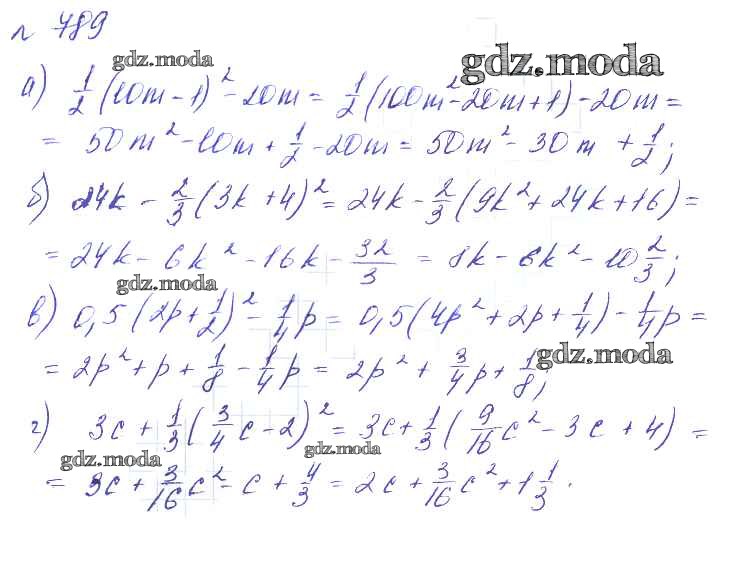 № 789
gdz.moda
gdz.moda
а) 1/2 (10m - 1)² - 20m = 1/2 (100m² - 20m + 1) - 20m =
= 50m² - 10m + 1/2 - 20m = 50m² - 30m + 1/2;
б) 24k - 2/3 (3k + 4)² = 24k - 2/3 (9k² + 24k + 16) =
= 24k - 6k² - 16k - 32/3 = 8k - 6k² - 10 2/3;
gdz.moda
в) 0,5 (2p + 1/2)² - 1/4 p = 0,5 (4p² + 2p + 1/4) - 1/4 p =
gdz.moda
= 2p² + p + 1/8 - 1/4 p = 2p² + 3/4 p + 1/8;
г) 3c + 1/3 (3/4 c - 2)² = 3c + 1/3 (9/16 c² - 3c + 4) =
gdz.moda
gdz.moda
= 3c + 3/16 c² - c + 4/3 = 2c + 3/16 c² + 1 1/3.